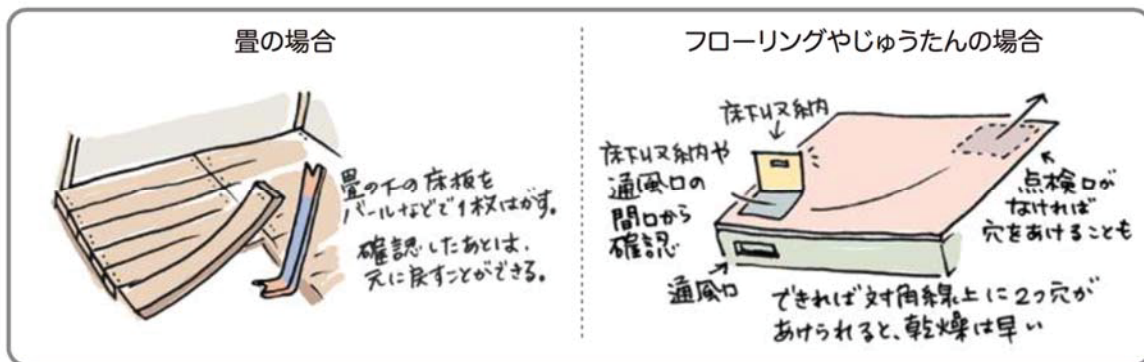 畳の場合
畳の下の床板を
バールなどで1枚はがす。
確認したあとは、
元に戻すことができる。
フローリングやじゅうたんの場合
床下収納
床下収納や
通風口の
間口から
確認
通風口
点検口が
なければ
穴をあけることも
できれば対角線上に2つ穴が
あけられると、乾燥は早い